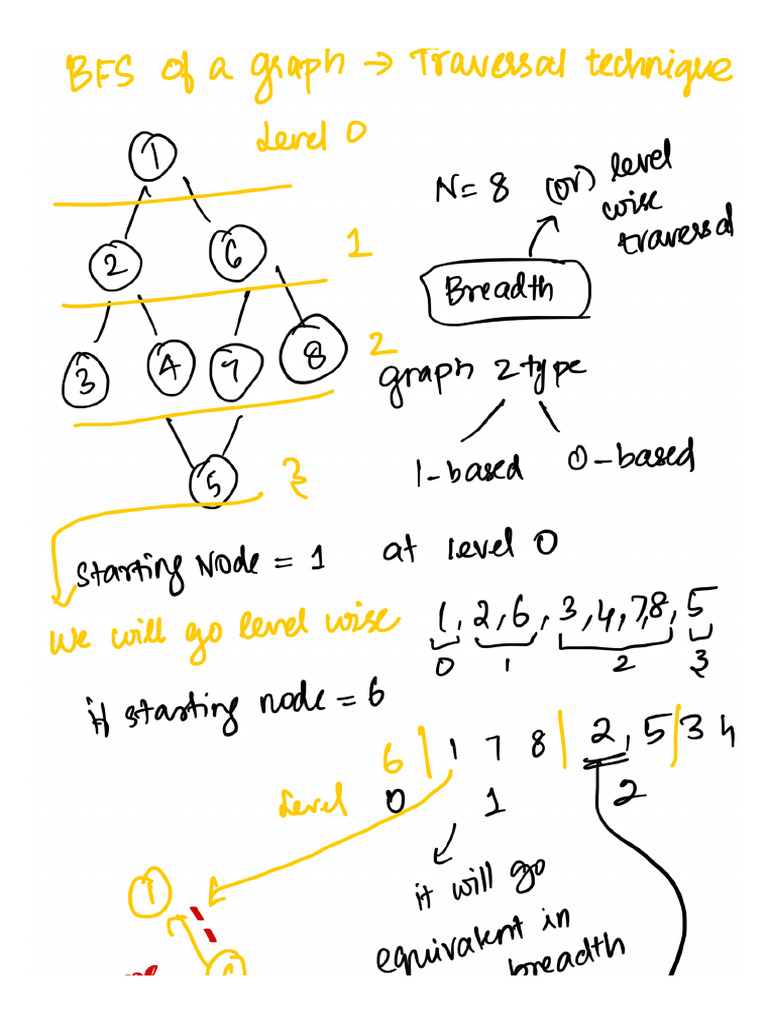 BFS of a graph → Traversal technique
Level 0
1
N = 8 (or) level
wise
traversal
2 6 1
Breadth
3 4 7 8 2
graph 2 type
1-based 0-based
5 3
Starting Node = 1 at level 0
We will go level wise 1, 2, 6, 3, 4, 7, 8, 5
0 1 2 3
if starting node = 6
6 | 1 7 8 | 2, 5 | 3 4
Level 0 1 2
1
it will go
equivalent in
breadth